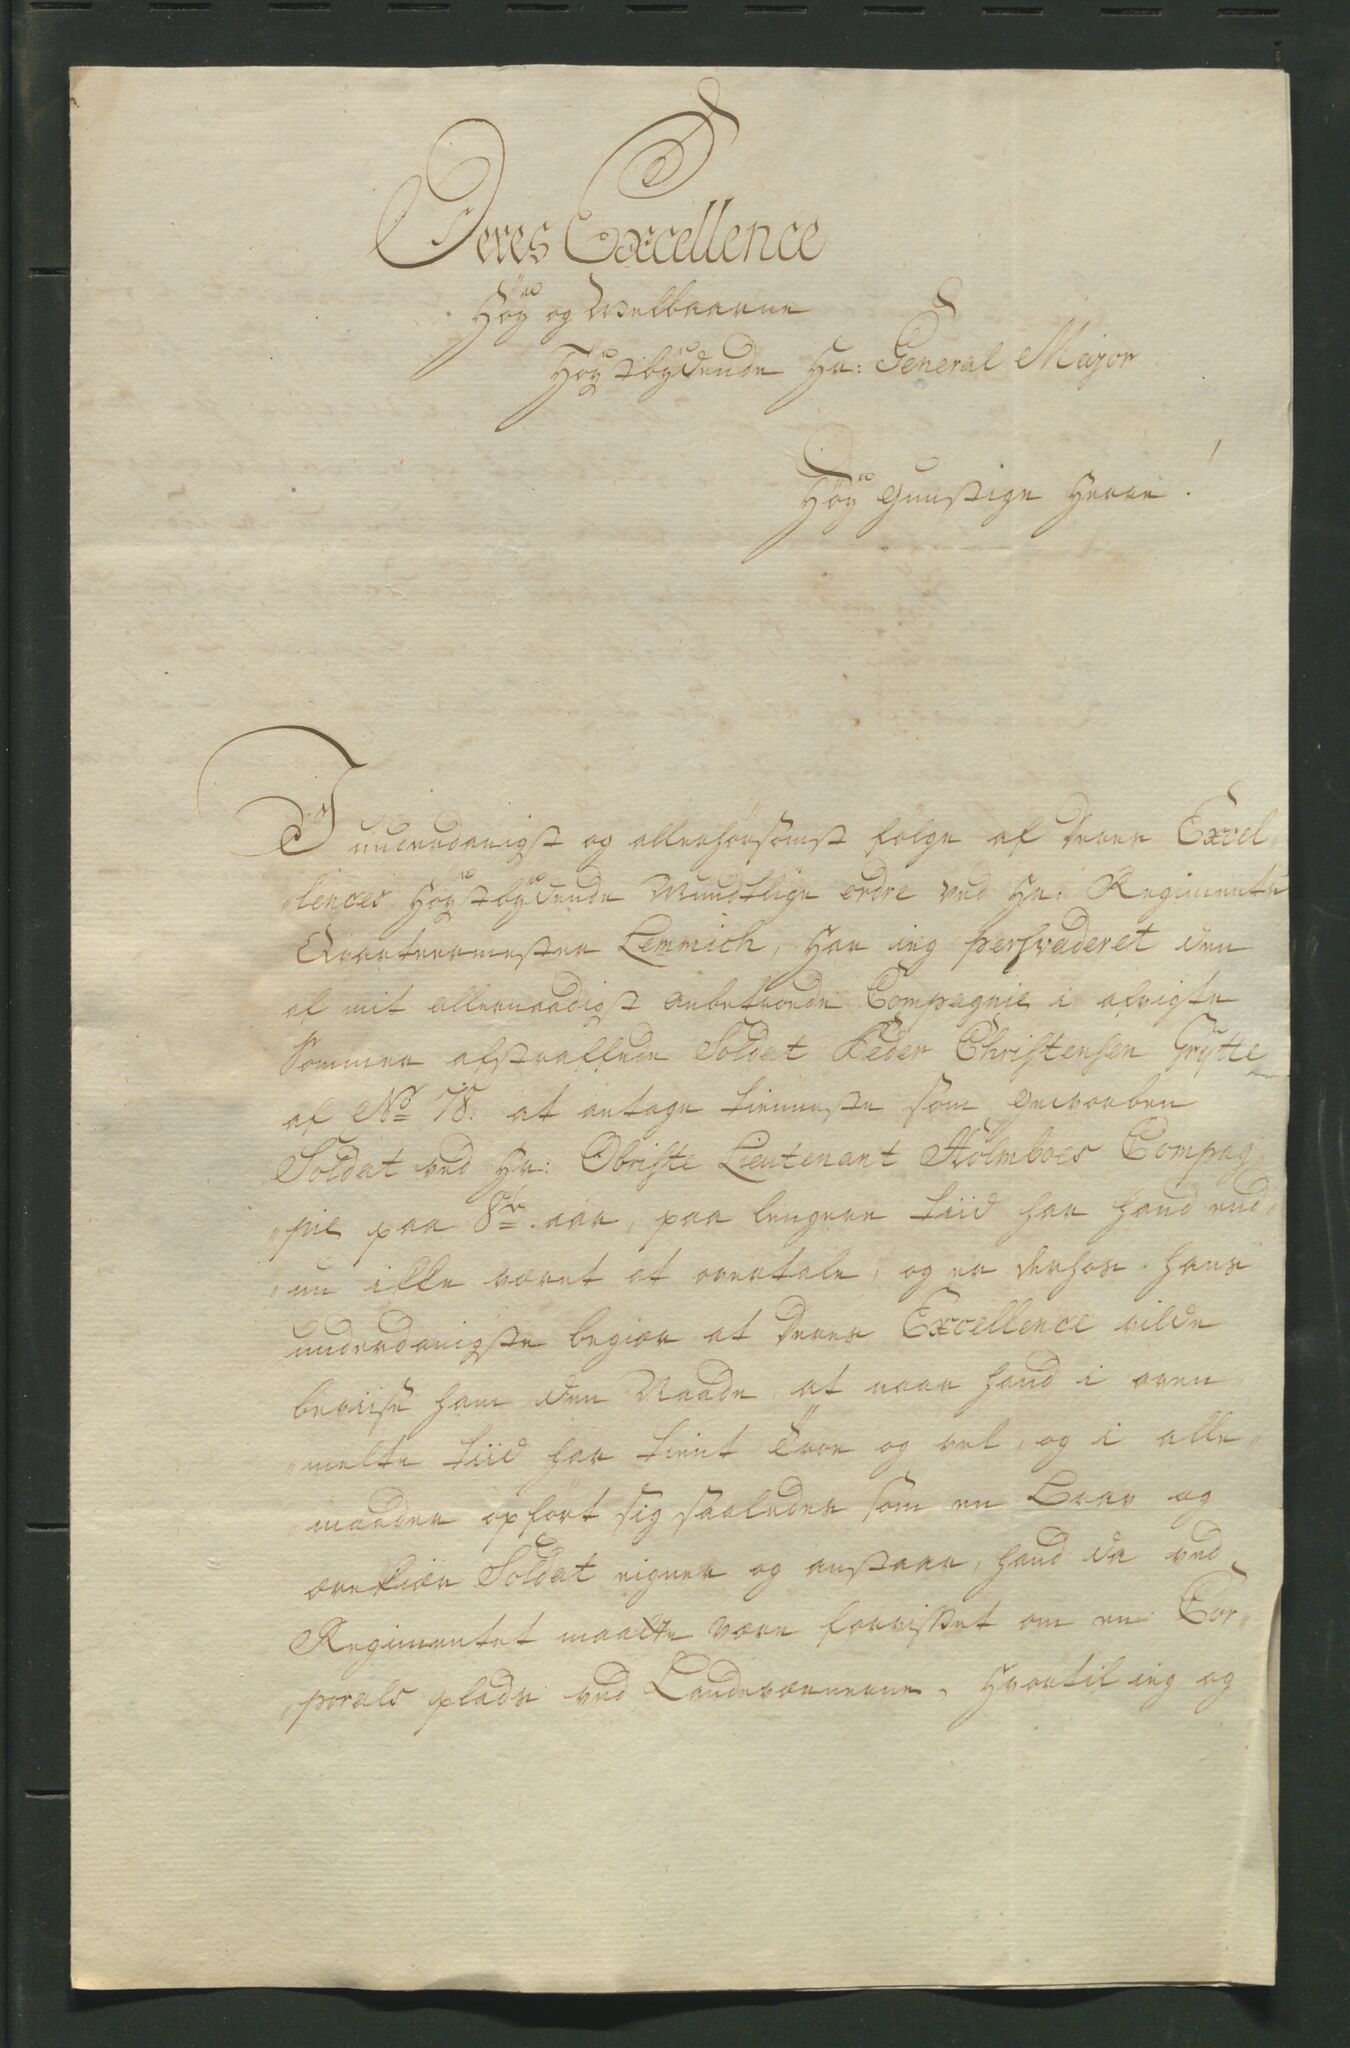 Deres Excellence
Höy og Welbaarne
Höystbydende Hr: General Major
Höy gunstige Herre !
I underdanigst og allerhörsomst fölge af Deres Excel„
„lences Höystbydende Mundtlige ordre ved Hr: Regiments
Qvarteermester Lemmich, har ieg persvaderet den
af mit allernaadigst anbetroede Compagnie i afvigte
Sommer afstraffede Soldat Peder Christensen Grÿtte
af No 78. at antage tienneste som geworben
Soldat ved Hr: Obriste Lieutenant Holmboes Compag„
„nie paa 8te aar, paa lengere tiid har hand end„
„nu ikke været at overtale, og er derhos hans
underdanigste begiær at Deres Excellence vilde
beviise ham den Naade, at naar hand i oven„
„melte tiid har tient Troe og vel, og i alle„
„maader opfört sig saaledes som en Brav og
ærekiær Soldat eigner og anstaar, hand da ved
Regimentet maatte være forvisset om en Cor„
„porals plads ved Landeværnerne, hvortil ieg og